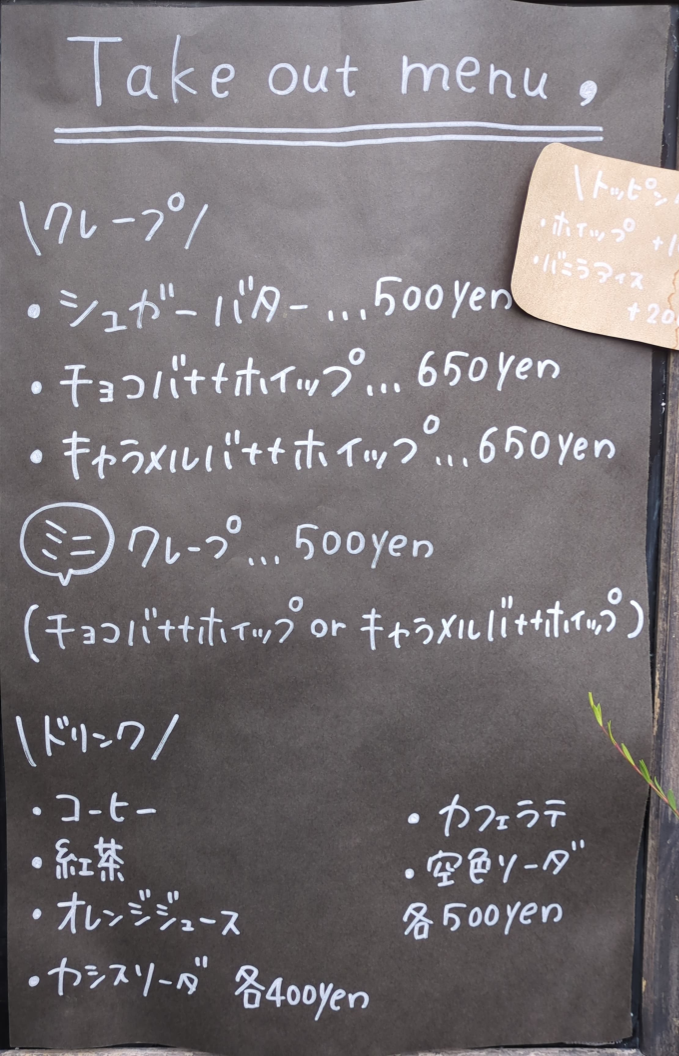 Take out menu,
\クレープ/
・シュガーバター...500yen
・チョコバナナホイップ...650yen
・キャラメルバナナホイップ...650yen
ミニ クレープ...500yen
(チョコバナナホイップ or キャラメルバナナホイップ)
\ドリンク/
・コーヒー
・紅茶
・オレンジジュース
・カシスソーダ 各400yen
・カフェラテ
・空色ソーダ
各500yen
\トッピン
・ホイップ +1
・バニラアイス
+20